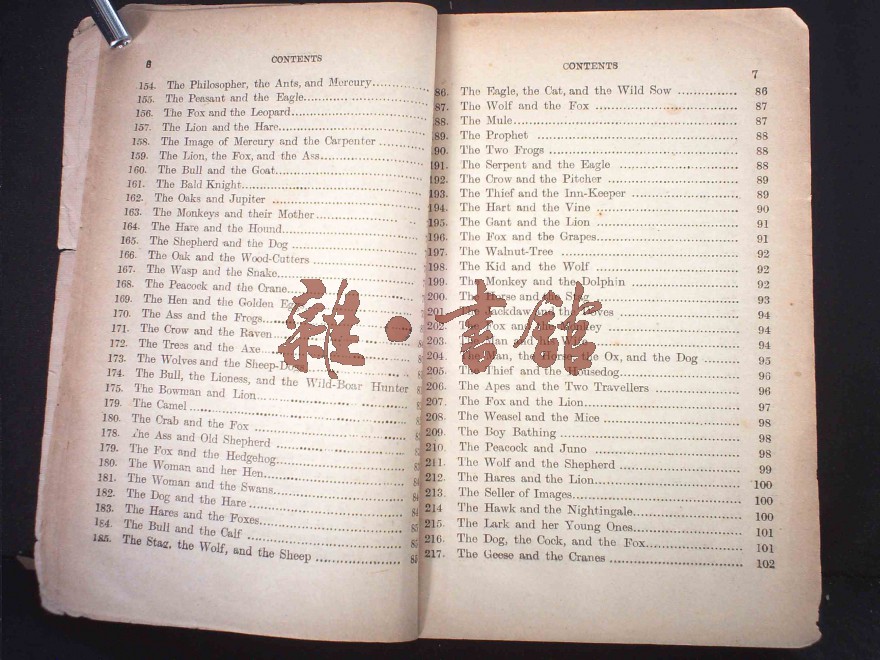 6 CONTENTS
154. The Philosopher, the Ants, and Mercury
155. The Peasant and the Eagle
156. The Fox and the Leopard
157. The Lion and the Hare
158. The Image of Mercury and the Carpenter
159. The Lion, the Fox, and the Ass
160. The Bull and the Goat
161. The Bald Knight
162. The Oaks and Jupiter
163. The Monkeys and their Mother
164. The Hare and the Hound
165. The Shepherd and the Dog
166. The Oak and the Wood-Cutters
167. The Wasp and the Snake
168. The Peacock and the Crane
169. The Hen and the Golden
170. The Ass and the Frogs
171. The Crow and the Raven
172. The Trees and the Axe
173. The Wolves and the Sheep-
174. The Bull, the Lioness, and the Wild-Boar Hunter
175. The Bowman and Lion
179. The Camel
180. The Crab and the Fox
178. The Ass and Old Shepherd
179. The Fox and the Hedgehog
180. The Woman and her Hen
181. The Woman and the Swans
182. The Dog and the Hare
183. The Hares and the Foxes
184. The Bull and the Calf
185. The Stag, the Wolf, and the Sheep
CONTENTS 7
86. The Eagle, the Cat, and the Wild Sow 86
87. The Wolf and the Fox 87
88. The Mule 87
89. The Prophet 88
90. The Two Frogs 88
191. The Serpent and the Eagle 88
192. The Crow and the Pitcher 89
193. The Thief and the Inn-Keeper 89
194. The Hart and the Vine 90
195. The Gant and the Lion 91
196. The Fox and the Grapes 91
197. The Walnut-Tree 92
198. The Kid and the Wolf 92
199. The Monkey and the Dolphin 92
200. The Horse and the Stag 93
201. The Jackdaw and the Doves 94
202. The Fox and the Monkey 94
203. The Man and 94
204. The Man, the Horse, the Ox, and the Dog 95
205. The Thief and the Housedog 96
206. The Apes and the Two Travellers 96
207. The Fox and the Lion 97
208. The Weasel and the Mice 98
209. The Boy Bathing 98
210. The Peacock and Juno 98
211. The Wolf and the Shepherd 99
212. The Hares and the Lion 100
213. The Seller of Images 100
214 The Hawk and the Nightingale 100
215. The Lark and her Young Ones 101
216. The Dog, the Cock, and the Fox 101
217. The Geese and the Cranes 102
雜·書館